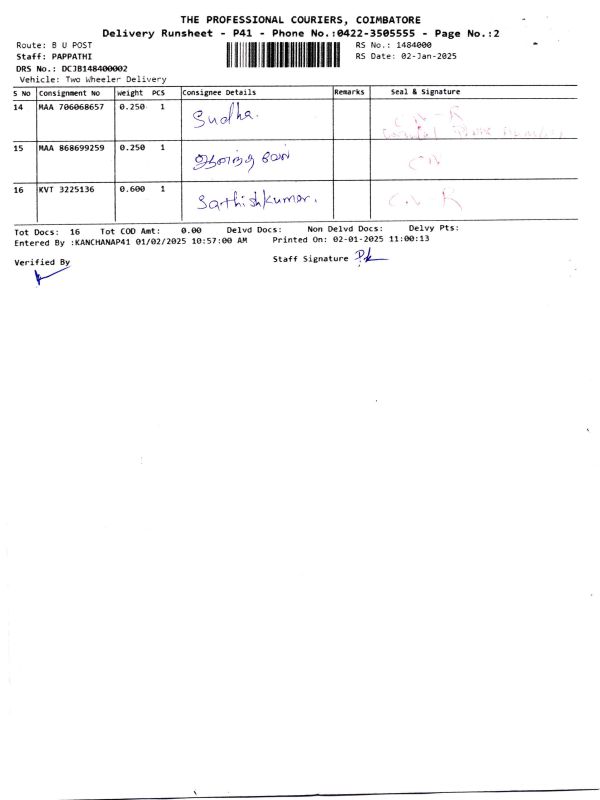 THE PROFESSIONAL COURIERS, COIMBATORE
Delivery Runsheet - P41 - Phone No.:0422-3505555 - Page No.:2
Route: B U POST RS No.: 1484000
Staff: PAPPATHI RS Date: 02-Jan-2025
DRS No.: DCJB148400002
Vehicle: Two Wheeler Delivery
S No Consignment No Weight PCS Consignee Details Remarks Seal & Signature
14 MAA 706068657 0.250 1 Sudha. C N - R
15 MAA 868699259 0.250 1 ஆனந்த வேல் CN
16 KVT 3225136 0.600 1 Sathishkumar. C N R
Tot Docs: 16 Tot COD Amt: 0.00 Delvd Docs: Non Delvd Docs: Delvy Pts:
Entered By :KANCHANAP41 01/02/2025 10:57:00 AM Printed On: 02-01-2025 11:00:13
Verified By Staff Signature